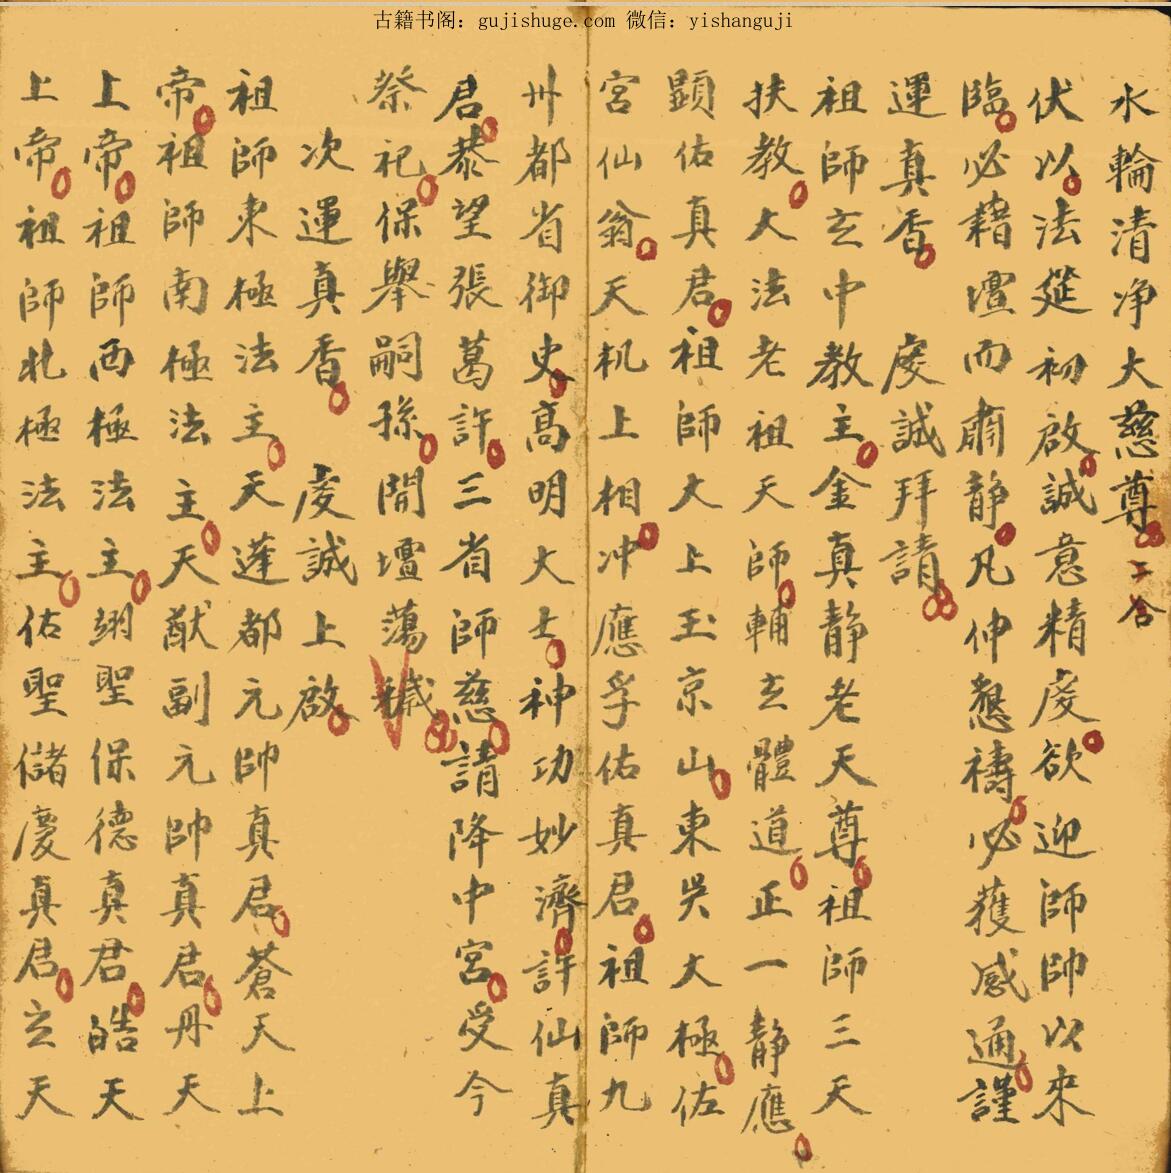 古籍书阁：gujishuge.com 微信：yishanguji
水輪清净大慈尊二合
伏以法筵初啟誠意精虔欲迎師帥以來
臨必藉壇而肅静凡仲懇禱必獲感通謹
運真香 虔誠拜請
祖師玄中教主金真静老天尊祖師三天
扶教大法老祖天師輔玄體道正一静應
顕佑真君祖師大上玉京山東吳大極佐
宮仙翁天机上相冲應孚佑真君祖師九
卅都省御史高明大士神功妙濟許仙真
君恭望張葛許三省師慈請降中宮受今
祭祀保舉嗣孫開壇蕩穢
次運真香 虔誠上啟
祖師東極法主天蓬都元帥真君蒼天上
帝祖師南極法主天猷副元帥真君丹天
上帝祖師西極法主翊聖保德真君皓天
上帝祖師北極法主佑聖儲慶真君玄天